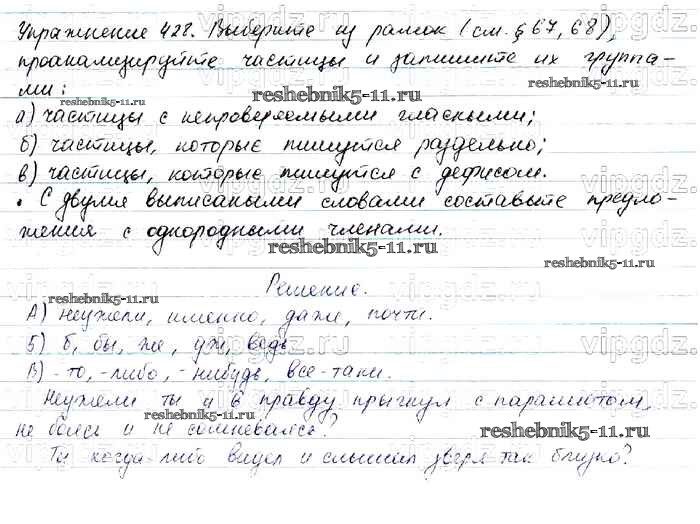 Упражнение 428. Выберите из рамок (см. § 67, 68),
проанализируйте частицы и запишите их группа-
ми:
reshebnik5-11.ru
а) частицы с непроверяемыми гласными;
б) частицы, которые пишутся раздельно;
в) частицы, которые пишутся с дефисом.
• С двумя выписаными словами составьте предло-
жения с однородными членами.
reshebnik5-11.ru
reshebnik5-11.ru
reshebnik5-11.ru
Решение.
А) неужели, именно, даже, почти.
reshebnik5-11.ru
Б) б, бы, же, уж, ведь
В) -то, -либо, -нибудь, все-таки.
Неужели ты и в правду прыгнул с парашютом,
reshebnik5-11.ru
не боялся и не сомневался?
reshebnik5-11.ru
Ты когда-либо видел и слышал зверя так близко?
vipgdz.com